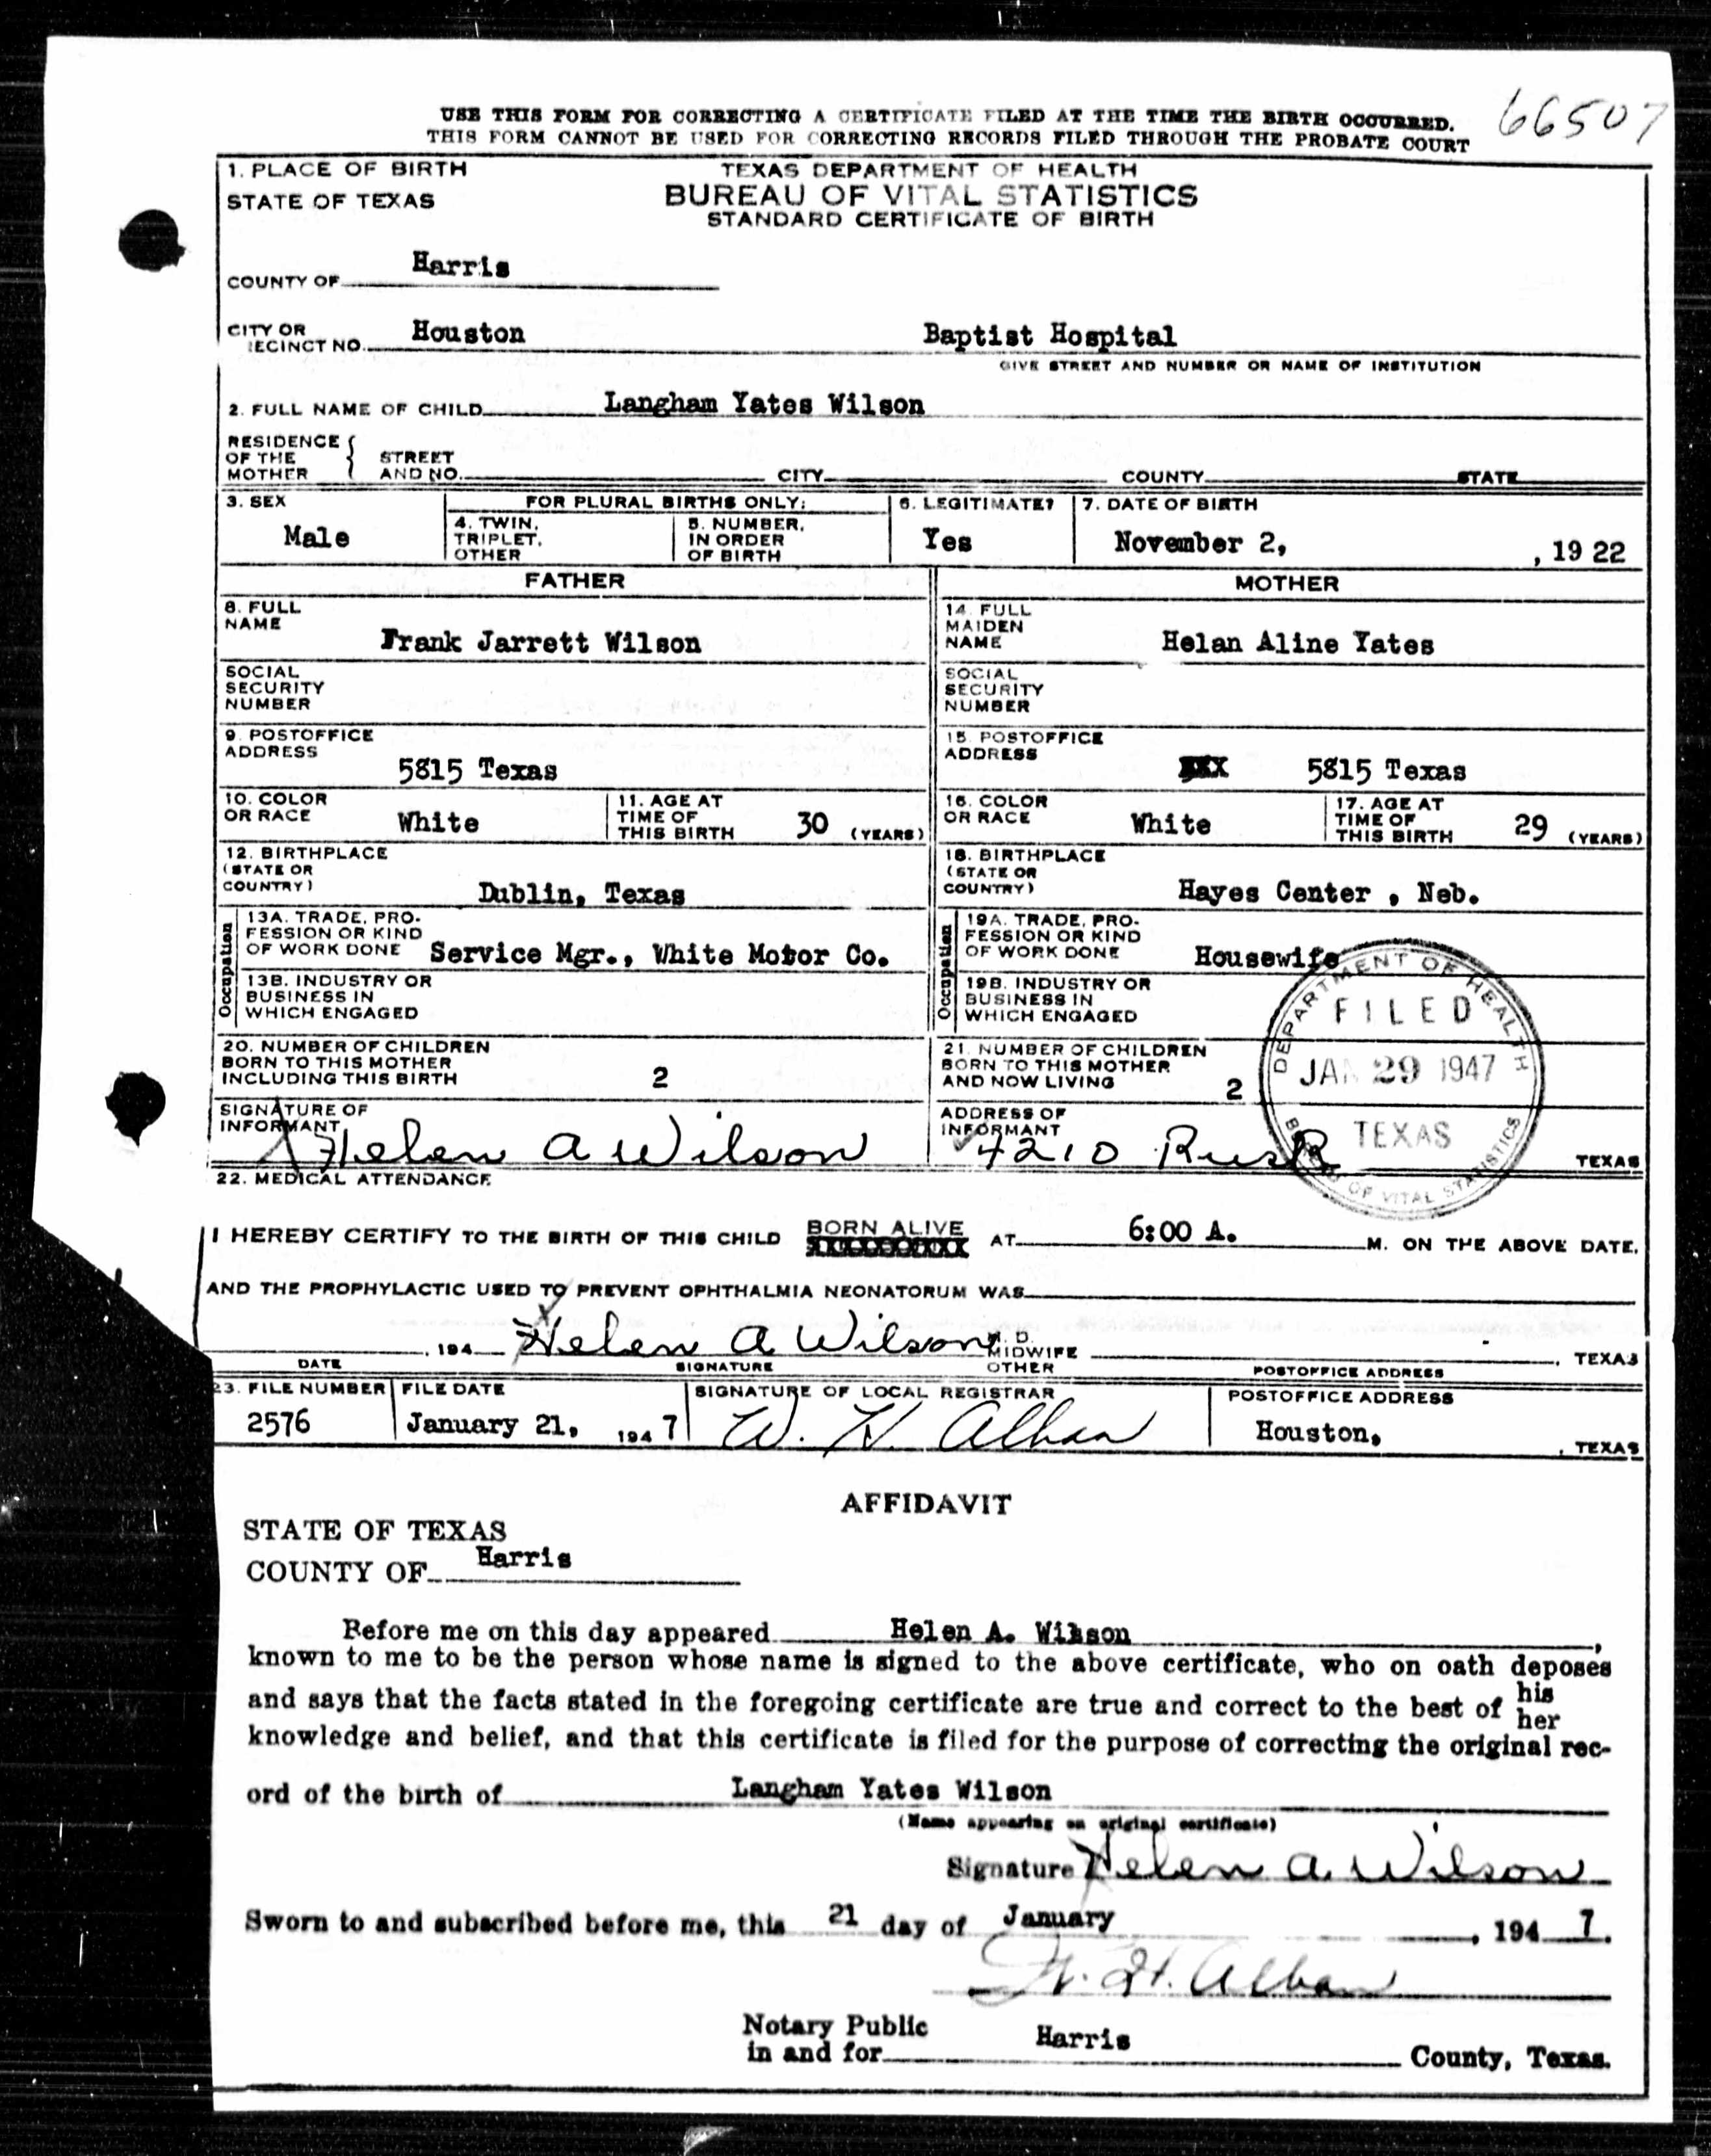 66507
USE THIS FORM FOR CORRECTING A CERTIFICATE FILED AT THE TIME THE BIRTH OCCURRED.
THIS FORM CANNOT BE USED FOR CORRECTING RECORDS FILED THROUGH THE PROBATE COURT
1. PLACE OF BIRTH
STATE OF TEXAS
TEXAS DEPARTMENT OF HEALTH
BUREAU OF VITAL STATISTICS
STANDARD CERTIFICATE OF BIRTH
COUNTY OF Harris
CITY OR
ECINCT NO. Houston Baptist Hospital
GIVE STREET AND NUMBER OR NAME OF INSTITUTION
2. FULL NAME OF CHILD Langham Yates Wilson
RESIDENCE
OF THE
MOTHER
STREET
AND NO. CITY COUNTY STATE
3. SEX
Male
FOR PLURAL BIRTHS ONLY:
4. TWIN,
TRIPLET,
OTHER
5. NUMBER,
IN ORDER
OF BIRTH
6. LEGITIMATE?
Yes
7. DATE OF BIRTH
November 2, , 19 22
FATHER
MOTHER
8. FULL
NAME
Frank Jarrett Wilson
14. FULL
MAIDEN
NAME Helan Aline Yates
SOCIAL
SECURITY
NUMBER
SOCIAL
SECURITY
NUMBER
9. POSTOFFICE
ADDRESS
5815 Texas
15. POSTOFFICE
ADDRESS
5815 Texas
10. COLOR
OR RACE White
11. AGE AT
TIME OF
THIS BIRTH 30 (YEARS)
16. COLOR
OR RACE White
17. AGE AT
TIME OF
THIS BIRTH 29 (YEARS)
12. BIRTHPLACE
(STATE OR
COUNTRY) Dublin, Texas
18. BIRTHPLACE
(STATE OR
COUNTRY) Hayes Center , Neb.
Occupation
13A. TRADE, PRO-
FESSION OR KIND
OF WORK DONE Service Mgr., White Motor Co.
13B. INDUSTRY OR
BUSINESS IN
WHICH ENGAGED
Occupation
19A. TRADE, PRO-
FESSION OR KIND
OF WORK DONE Housewife
19B. INDUSTRY OR
BUSINESS IN
WHICH ENGAGED
DEPARTMENT OF HEALTH
FILED
JAN 29 1947
TEXAS
BUREAU OF VITAL STATISTICS
20. NUMBER OF CHILDREN
BORN TO THIS MOTHER
INCLUDING THIS BIRTH 2
21. NUMBER OF CHILDREN
BORN TO THIS MOTHER
AND NOW LIVING 2
SIGNATURE OF
INFORMANT Helen A Wilson
ADDRESS OF
INFORMANT 4210 Rusk TEXAS
22. MEDICAL ATTENDANCE
I HEREBY CERTIFY TO THE BIRTH OF THIS CHILD BORN ALIVE AT 6:00 A. M. ON THE ABOVE DATE,
AND THE PROPHYLACTIC USED TO PREVENT OPHTHALMIA NEONATORUM WAS
, 194 Helen A Wilson M. D.
MIDWIFE
OTHER , TEXAS
DATE SIGNATURE POSTOFFICE ADDRESS
23. FILE NUMBER
2576
FILE DATE
January 21, 194 7
SIGNATURE OF LOCAL REGISTRAR
W. H. Alban
POSTOFFICE ADDRESS
Houston, , TEXAS
AFFIDAVIT
STATE OF TEXAS
COUNTY OF Harris
Before me on this day appeared Helen A. Wilson ,
known to me to be the person whose name is signed to the above certificate, who on oath deposes
and says that the facts stated in the foregoing certificate are true and correct to the best of his
her
knowledge and belief, and that this certificate is filed for the purpose of correcting the original rec-
ord of the birth of Langham Yates Wilson
(Name appearing on original certificate)
Signature Helen A. Wilson
Sworn to and subscribed before me, this 21 day of January , 194 7.
W. H. Alban
Notary Public
in and for Harris County, Texas.